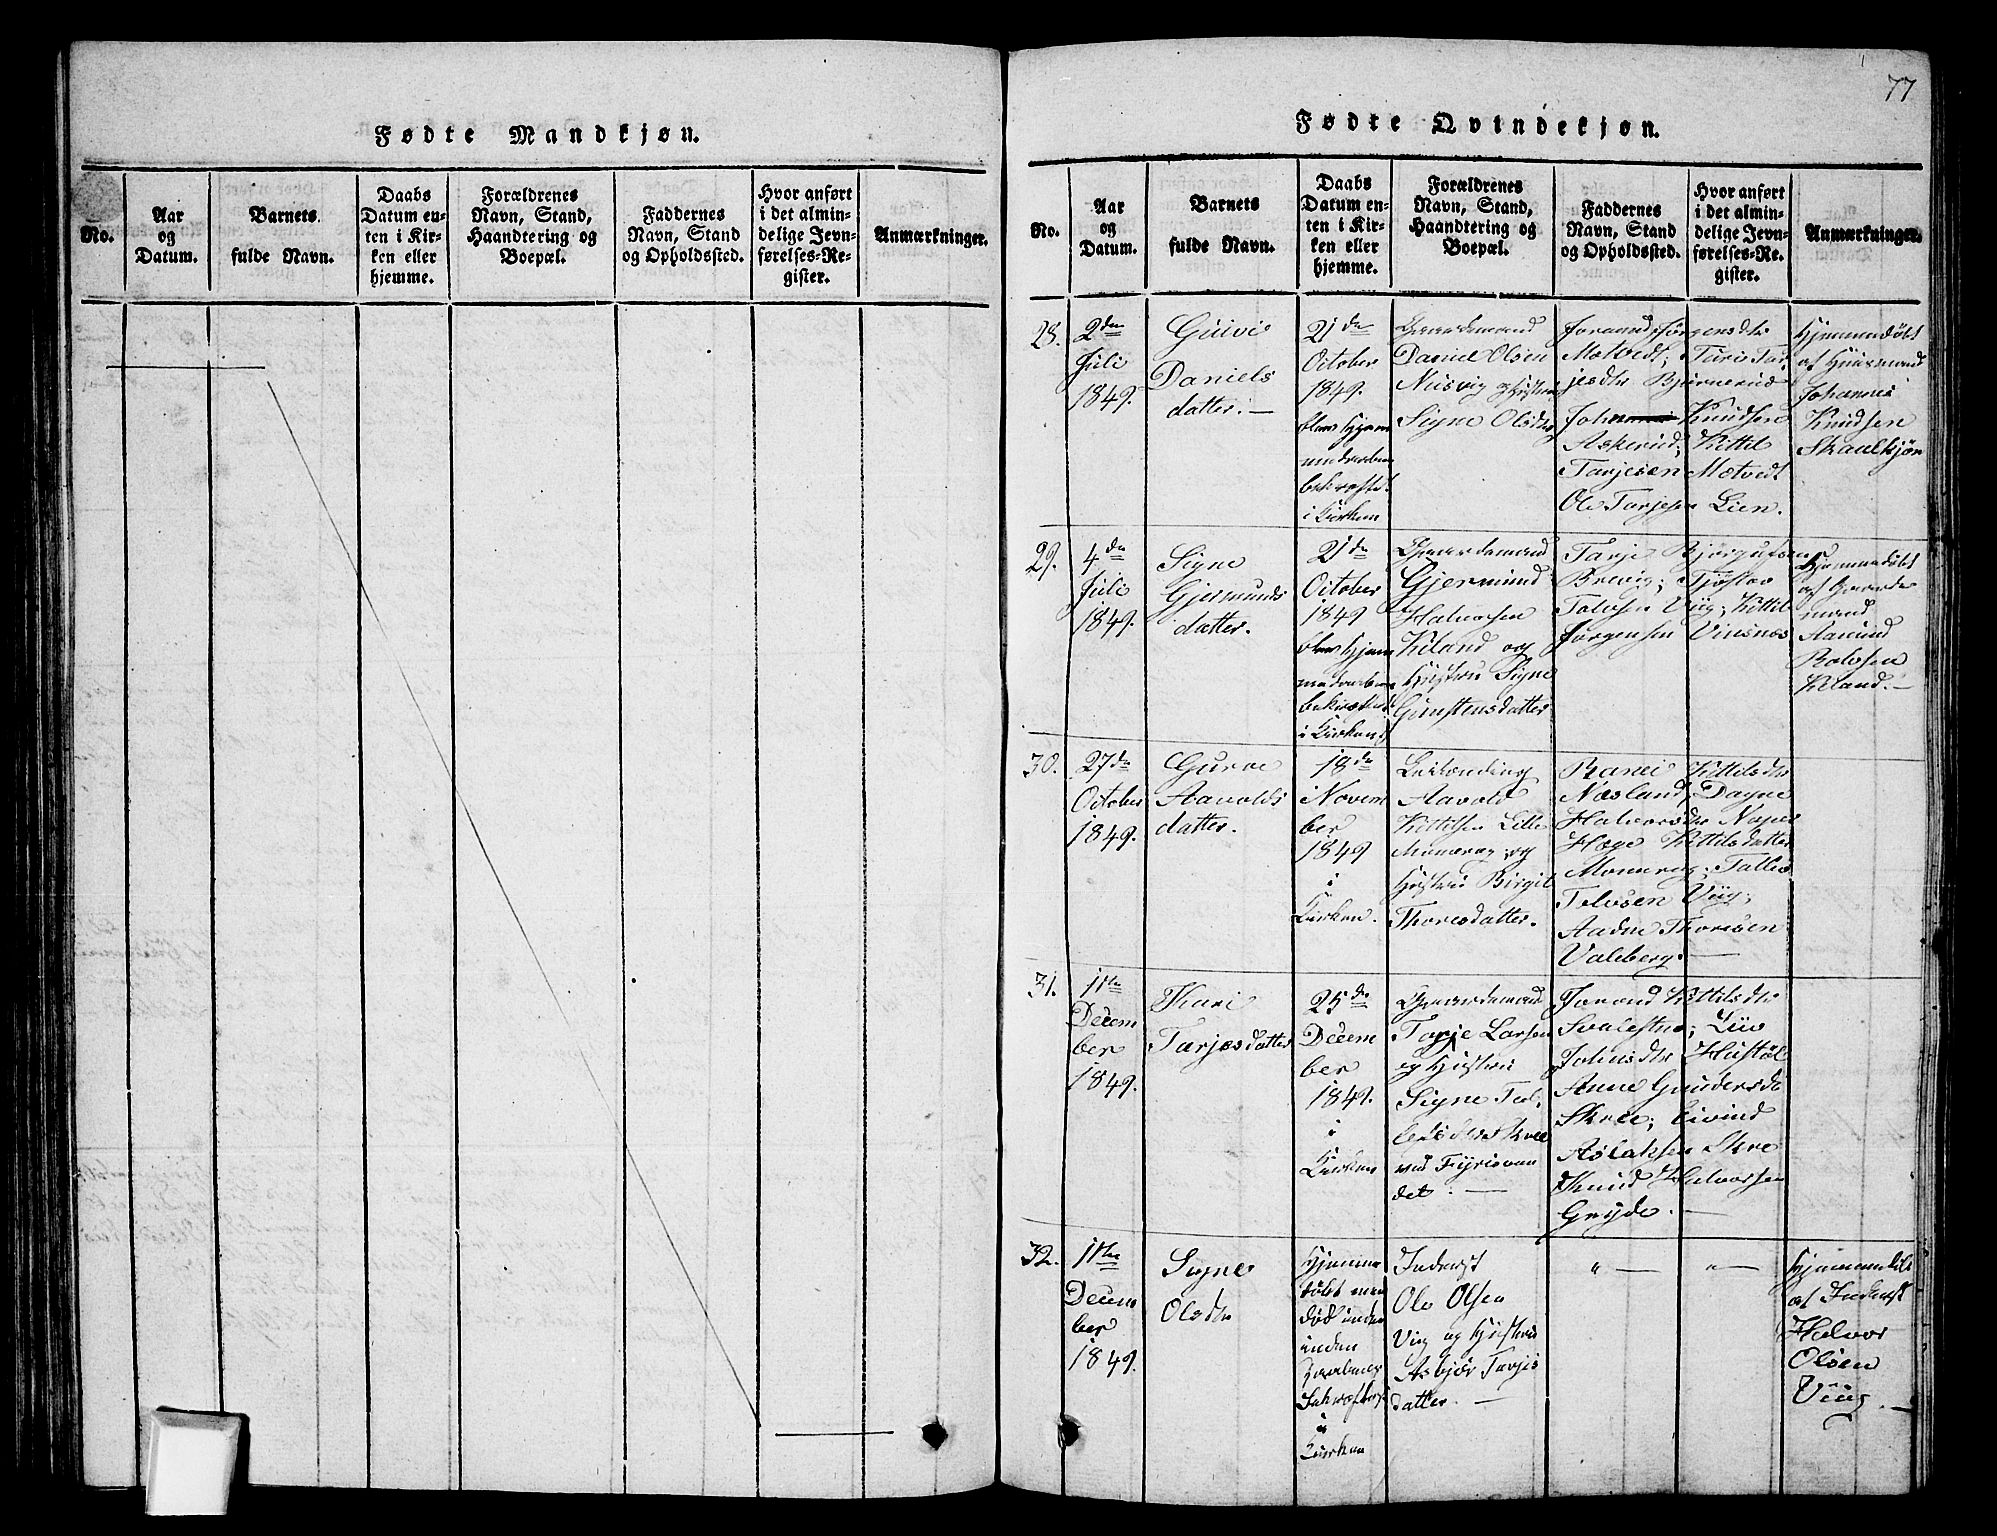 77
Fødte Mandkjøn.
No.
Aar
og
Datum.
Barnets
fulde Navn.
Daabs
Datum en-
ten i Kir-
ken eller
hjemme.
Forældrenes
Navn, Stand,
Haandtering og
Boepæl.
Faddernes
Navn, Stand
og Opholdssted.
Hvor anført
i det almin-
delige Jevn-
førelses-Re-
gister.
Anmærkninger.
Fødte Qvindekjøn.
No.
Aar
og
Datum.
Barnets
fulde Navn.
Daabs
Datum en-
ten i Kir-
ken eller
hjemme.
Forældrenes
Navn, Stand,
Haandtering og
Boepæl.
Faddernes
Navn, Stand
og Opholdssted.
Hvor anført
i det almin-
delige Jevn-
førelses-Re-
gister.
Anmærkninger.
28.
2den
Juli
1849.
Daniels
datter. —
21de
October
1849.
blev Hjem
bekræftet
i Kirken
Gaardemand
Daniel Olsen
Signe Olsdtr
Jorand Jørgensdtr
Motvedt; Turi Tar
jesdtr Bjørnerud
Knudsen
Askerud; Kittil
Tarjesen Motvedt
Ole Tarjesen Lien.
Hjemmedøbt
af Huusmand
Johannes
Knudsen
29.
4de
Juli
1849.
Signe
Gjermunds
datter.
21de
October
1849
blev Hjem
bekræftet
i Kirken
Gaardemand
Gjermund
Halvorsen
Kiland og
Hustru Signe
Gunstensdatter
Tarje Bjørgufsen
Brevig; Tjøstov
Talvsen Viig; Kittil
Jørgensen Vinsnes
Hjemmedøbt
af Gaarde
mand
Aamund
Rolvsen
Kiland. —
30.
27de
October
1849.
Gurve
Aavolds
datter.
18de
Novem
ber
1849
i
Kirken.
Leilænding
Aavold
Kittilsen Lille
og
Hustru Birgit
Thoresdatter.
Ranei Kittilsdtr
Næsland; Dagne
Halvorsdtr
Høge Kittilsdatter
Tallev
Talvsen Viig;
Aadne Thoresen
Valeberg. —
31.
11te
Decem
ber
1849.
Kari
Tarjesdatter
25de
Decem
ber
1849.
i
Kirken
Gaardemand
Tarje Larsen
og Hustru
Signe Tal
lefsdtr Skree
ved Fyrisvan
det. —
Jorand Kittilsdtr
Svalestue; Liv
Johnsdtr Hustøl
Anne Gundersdtr
Skree; Eivind
Aslaksen Skre
Knud Halvorsen
Grøjde. —
32.
11te
Decem
ber
1849.
Signe
Olsdtr
Hjemme
døbt men
død inden
i
Kirken
Inderst
Ole Olsen
Viig og Hustru
Asbjør Tarjes
datter. —
" —
" —
Hjemmedøbt
af Inderst
Halvor
Olsen
Viig. —